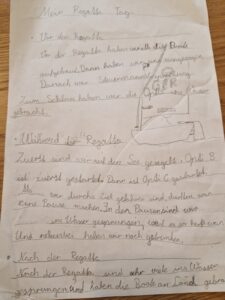 Mein Regatta Tag
• Vor der Regatta
Vor der Regatta haben wir alle die Boote
aufgebaut. Dann haben wir
Danach war Steuermannsbesprechung.
Zum Schluss haben wir die Opti
gebracht.
• Während der Regatta
Zuerst sind wir auf den See gesegelt. Opti B
ist zuerst gestartet. Dann ist Opti C gestartet.
wir durchs Ziel gefahren sind, durften wir
eine Pause machen. In der Pause sind wir
ins Wasser gesprungen, weil es so heiß war.
Und nebenbei haben wir noch getrunken.
• Nach der Regatta
Nach der Regatta sind sehr viele ins Wasser
gesprungen und haben die Boote an Land gebra